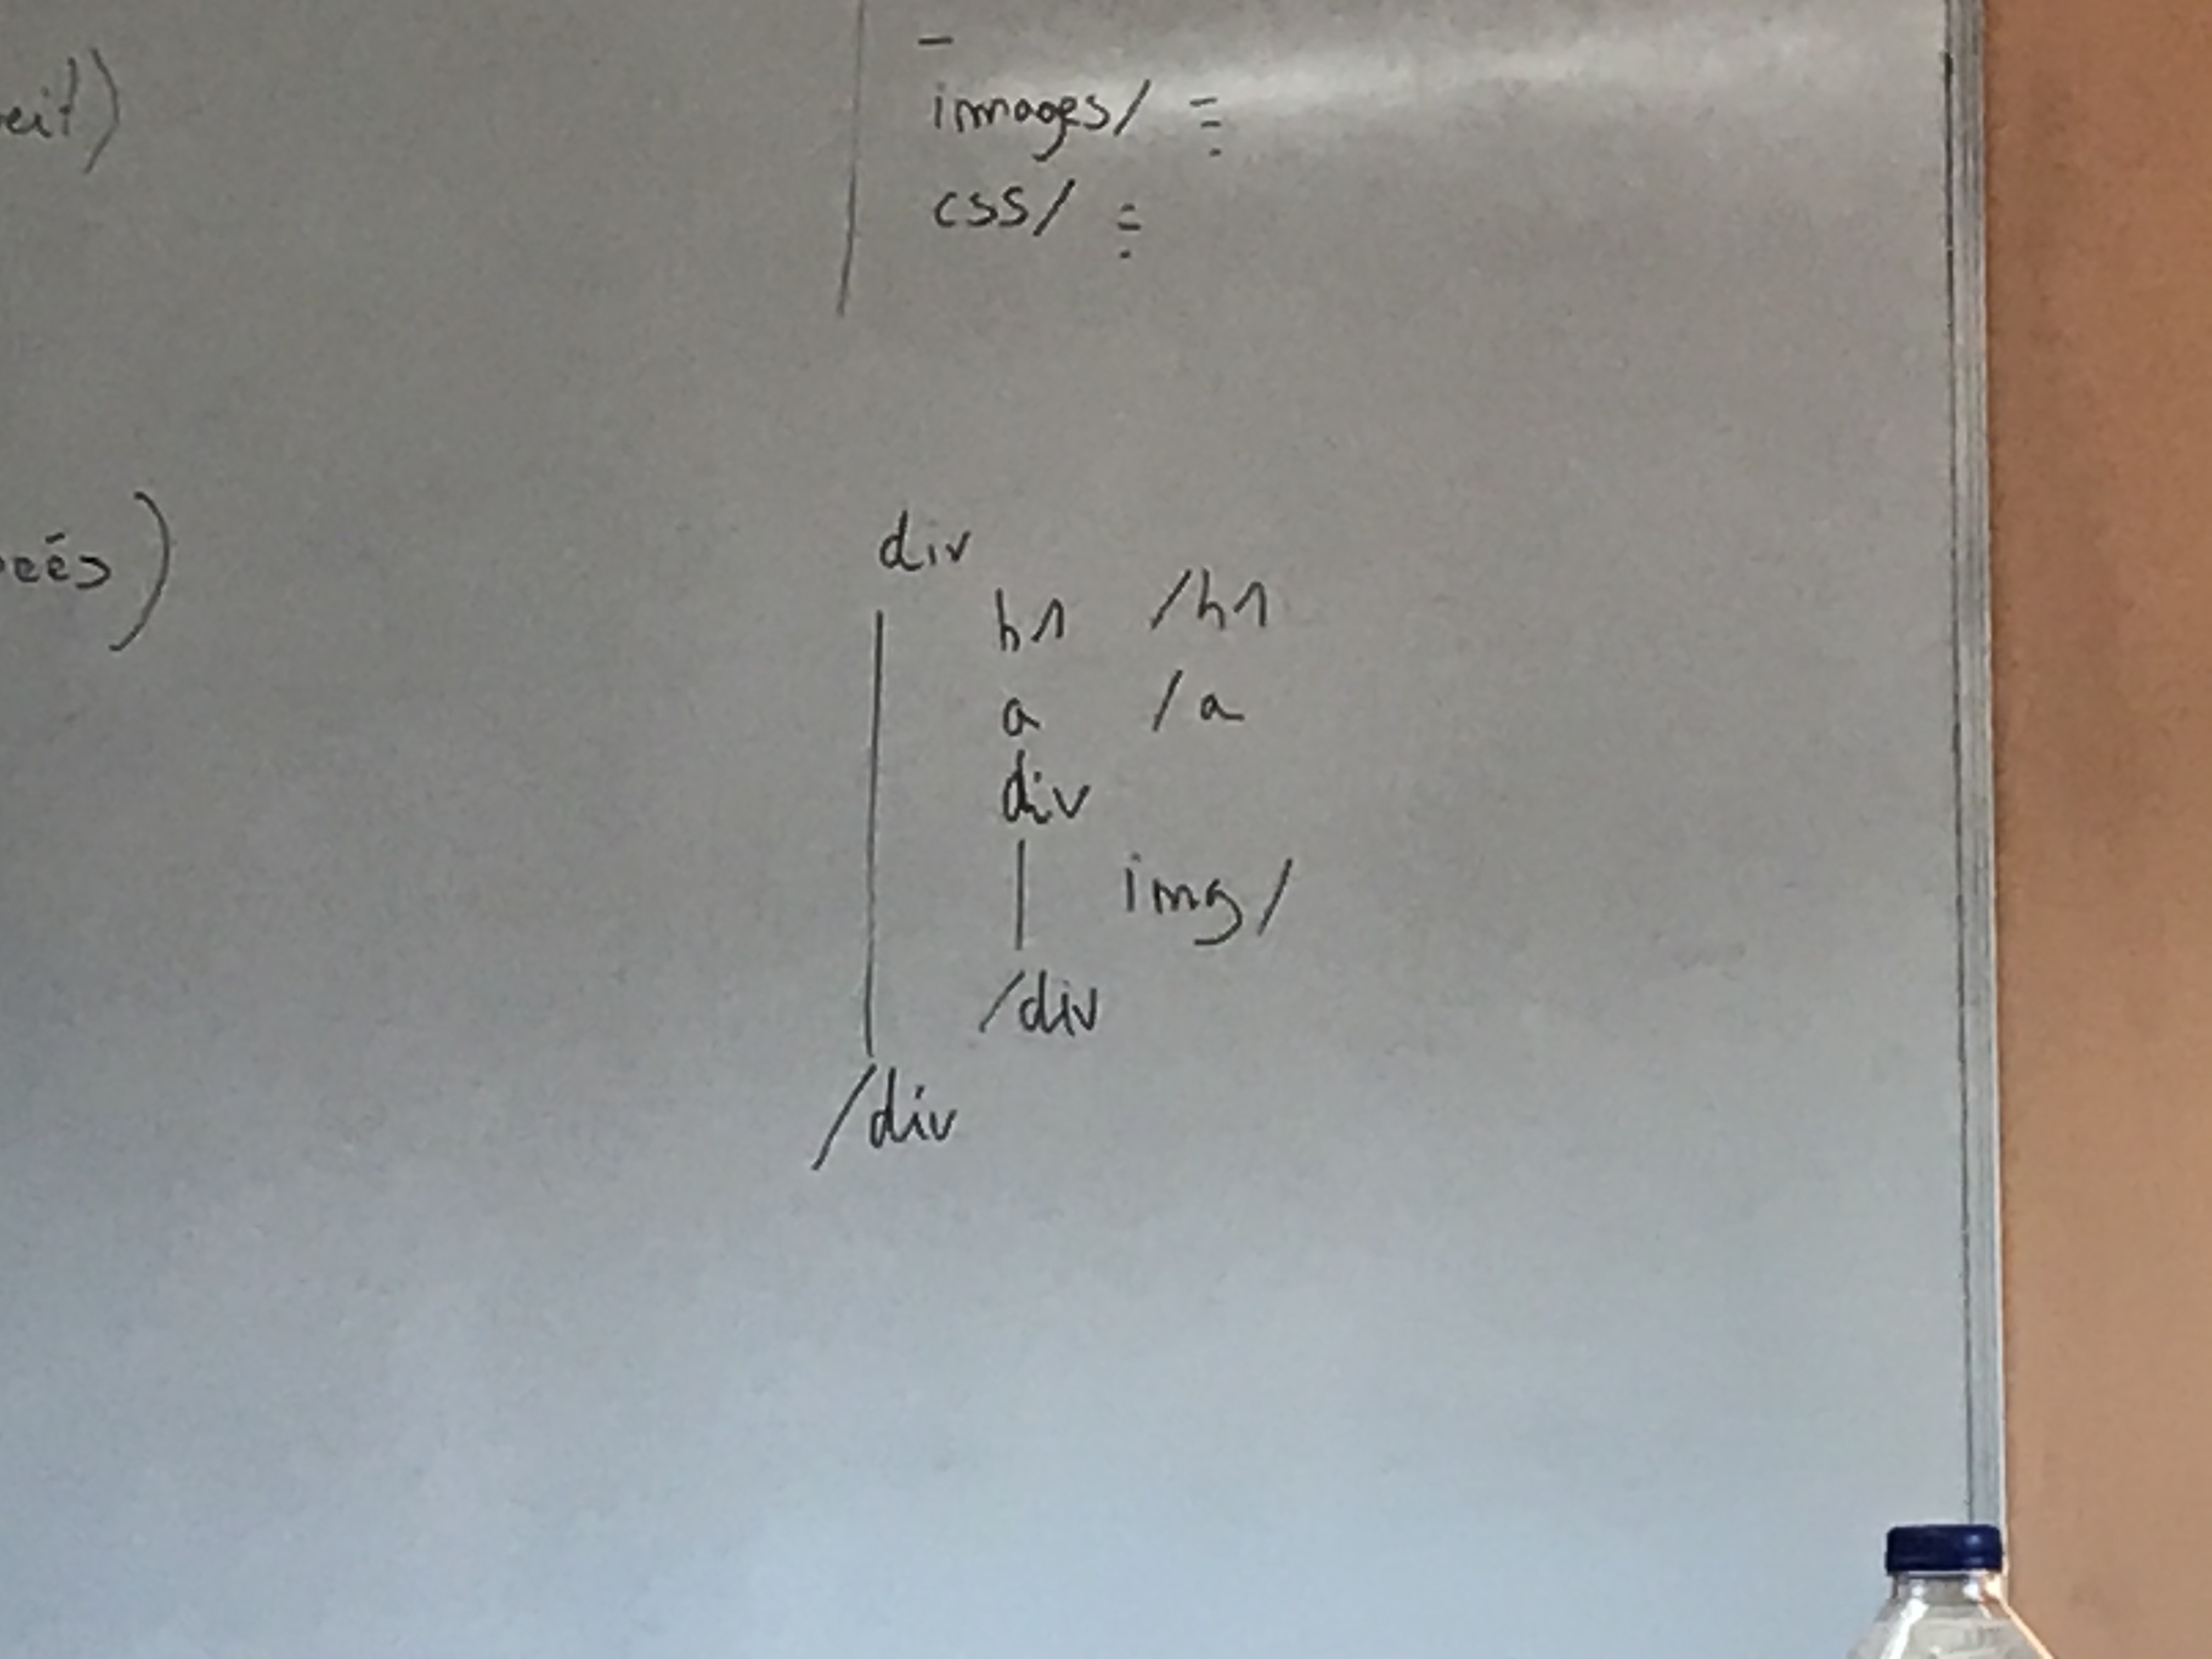 images/
css/
div
h1 /h1
a /a
div
img/
/div
/div